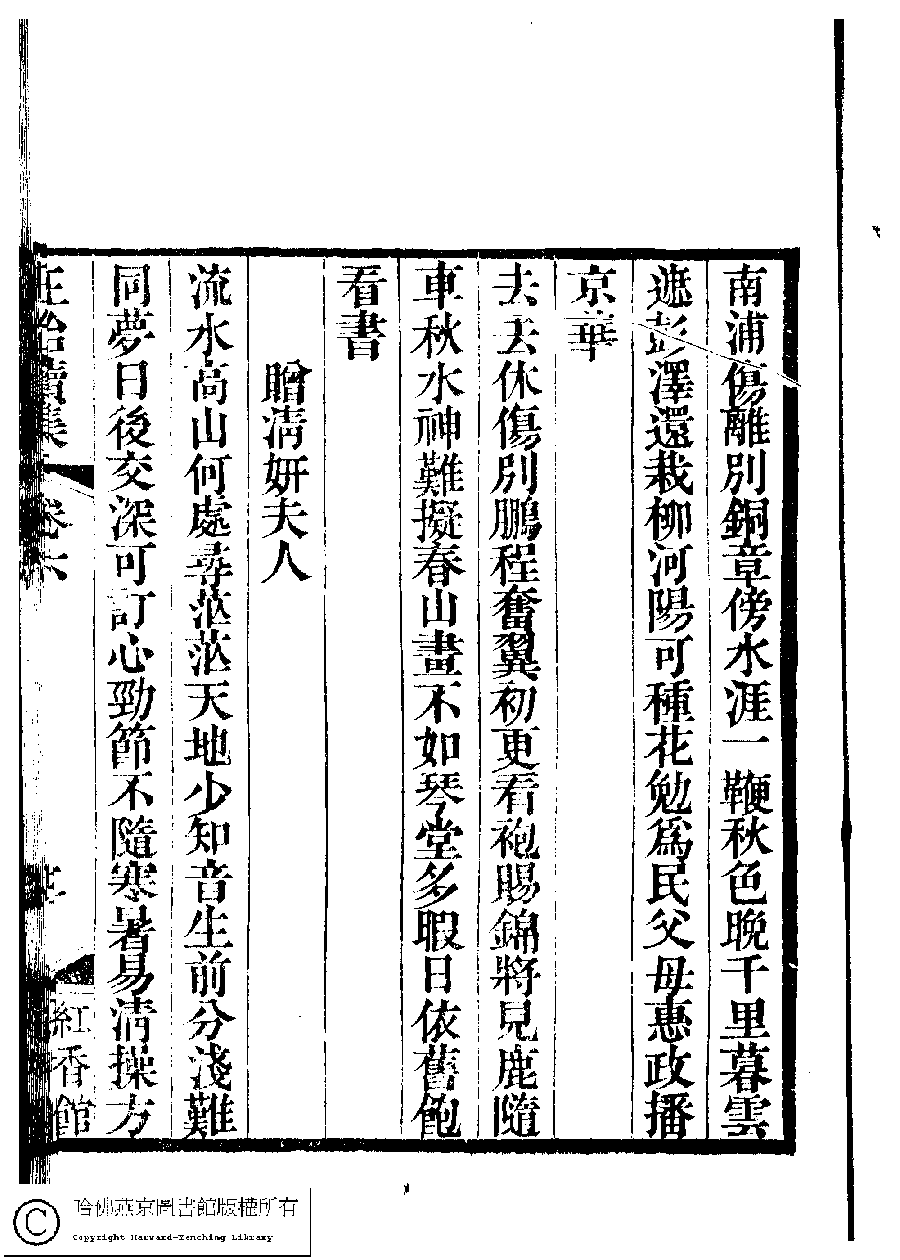 南浦傷離別銅章傍水涯一鞭秋色晚千里暮雲
遮彭澤還栽柳河陽可種花勉爲民父母惠政播
京華
去去休傷別鵬程奮翼初更看袍賜錦將見鹿隨
車秋水神難擬春山畫不如琴堂多暇日依舊飽
看書
贈清妍夫人
流水高山何處尋茫茫天地少知音生前分淺難
同夢日後交深可訂心勁節不隨寒暑易清操方
正始續集 卷六 紅香館
哈佛燕京圖書館版權所有
Copyright Harvard-Yenching Library